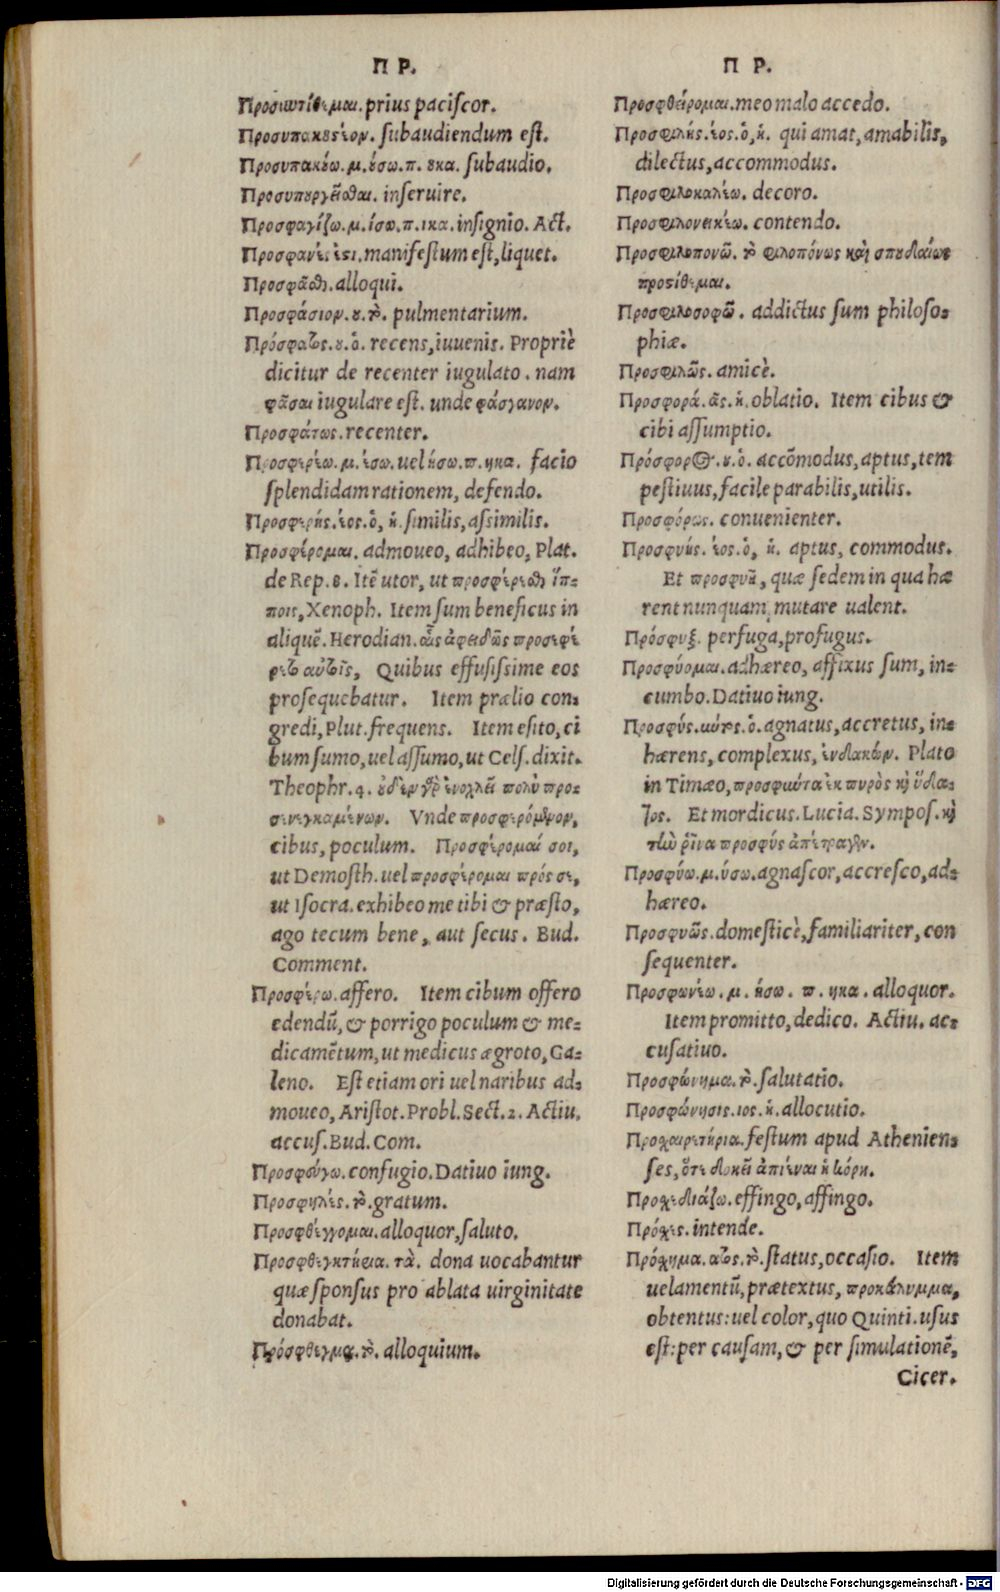 Π Ρ.
Προσυντίθεμαι. prius paciſcor.
Προσυπακουστέον. ſubaudiendum eſt.
Προσυπακούω. μ. ούσω. π. ουκα. ſubaudio.
Προσυπουργεῖσθαι. inſeruire.
Προσφαγίζω. μ. ίσω. π. ικα. inſignio. Act.
Προσφανές ἐστι. manifeſtum eſt, liquet.
Προσφᾶσθαι. alloqui.
Προσφάσιον. ου. τὸ. pulmentarium.
Πρόσφατος. ου. ὁ. recens, iuuenis. Propriè
dicitur de recenter iugulato. nam
φᾶσαι iugulare eſt. unde φάσγανον.
Προσφάτως. recenter.
Προσφερέω. μ. έσω. uel ήσω. π. ηκα. facio
ſplendidam rationem, defendo.
Προσφερής. έος. ὁ, ἡ. ſimilis, aſsimilis.
Προσφέρομαι. admoueo, adhibeo, Plat.
de Rep. 8. Itẽ utor, ut προσφέρεσθαι ἵπ-
ποις, Xenoph. Item ſum beneficus in
aliquẽ. Herodian. οἷς ἀφειδῶς προσεφέ
ρετο αὐτοῖς, Quibus effuſiſsime eos
proſequebatur. Item prælio con-
gredi, Plut. frequens. Item eſito, ci
bum ſumo, uel aſſumo, ut Celſ. dixit.
Theophr. 4. οὐδὲν γὰρ ἐνοχλεῖ πολὺ προ-
σενεγκαμένων. Vnde προσφερόμενον,
cibus, poculum. Προσφέρομαί σοι,
ut Demoſth. uel προσφέρομαι πρός σε,
ut Iſocra. exhibeo me tibi & præſto,
ago tecum bene, aut ſecus. Bud.
Comment.
Προσφέρω. affero. Item cibum offero
edendũ, & porrigo poculum & me-
dicamẽtum, ut medicus ægroto, Ga-
leno. Eſt etiam ori uel naribus ad-
moueo, Ariſtot. Probl. Sect. 2. Actiu.
accuſ. Bud. Com.
Προσφεύγω. confugio. Datiuo iung.
Προσφιλές. τὸ. gratum.
Προσφθέγγομαι. alloquor, ſaluto.
Προσφθεγκτήρια. τὰ. dona uocabantur
quæ ſponſus pro ablata uirginitate
donabat.
Πρόσφθεγμα. τὸ. alloquium.
Π Ρ.
Προσφθείρομαι. meo malo accedo.
Προσφιλής. έος. ὁ, ἡ. qui amat, amabilis,
dilectus, accommodus.
Προσφιλοκαλέω. decoro.
Προσφιλονεικέω. contendo.
Προσφιλοπονῶ. τὸ φιλοπόνως καὶ σπουδαίως
προστίθεμαι.
Προσφιλοσοφῶ. addictus ſum philoſo-
phiæ.
Προσφιλῶς. amicè.
Προσφορά. ᾶς. ἡ. oblatio. Item cibus &
cibi aſſumptio.
Πρόσφορος. ου. ὁ. accõmodus, aptus, tem
peſtiuus, facile parabilis, utilis.
Προσφόρως. conuenienter.
Προσφυής. έος. ὁ, ἡ. aptus, commodus.
Et προσφυῆ, quæ ſedem in qua hæ
rent nunquam mutare ualent.
Πρόσφυξ. perfuga, profugus.
Προσφύομαι. adhæreo, affixus ſum, in-
cumbo. Datiuo iung.
Προσφύς. ύντος. ὁ. agnatus, accretus, in-
hærens, complexus, ἐνδακών. Plato
in Timæo, προσφυύτα ἐκ πυρὸς καὶ ὕδα-
τος. Et mordicus. Lucia. Sympoſ. καὶ
τὴν ῥῖνα προσφύς ἀπέτραγεν.
Προσφύω. μ. ύσω. agnaſcor, accreſco, ad-
hæreo.
Προσφυῶς. domeſticè, familiariter, con
ſequenter.
Προσφωνέω. μ. ήσω. π. ηκα. alloquor.
Item promitto, dedico. Actiu. ac-
cuſatiuo.
Προσφώνημα. τὸ. ſalutatio.
Προσφώνησις. ιος. ἡ. allocutio.
Προχαιρητήρια. feſtum apud Athenien-
ſes, ὅτε δοκεῖ ἀπιέναι ἡ κόρη.
Προχεδιάζω. effingo, affingo.
Πρόχες. intende.
Πρόχημα. ατος. τὸ. ſtatus, occaſio. Item
uelamentũ, prætextus, προκάλυμμα,
obtentus: uel color, quo Quinti. uſus
eſt: per cauſam, & per ſimulationẽ,
Cicer.
Digitalisierung gefördert durch die Deutsche Forschungsgemeinschaft - DFG